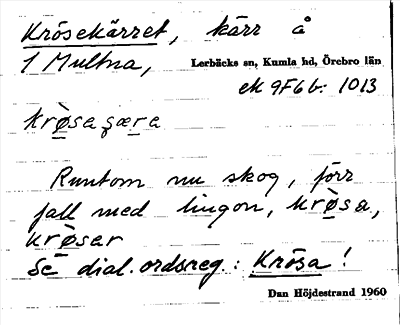 Krösekärret, kärr å
1 Multna, Lerbäcks sn, Kumla hd, Örebro län
ek 9F6b: 1013
krø̀sa ʂæra
Runtom nu skog, förr
fall med lingon, krø̀sa,
krø̀ser
Se dial.ordsreg.: Krösa!
Dan Höjdestrand 1960